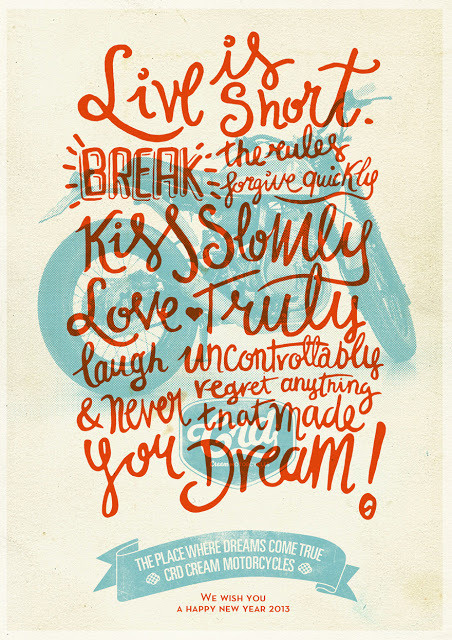 Live is
Short.
BREAK the rules
forgive quickly
Kiss Slowly
Love ♥ Truly
laugh uncontrollably
& never regret anything
that made
you Dream!
THE PLACE WHERE DREAMS COME TRUE
CRD CREAM MOTORCYCLES
WE WISH YOU
A HAPPY NEW YEAR 2013